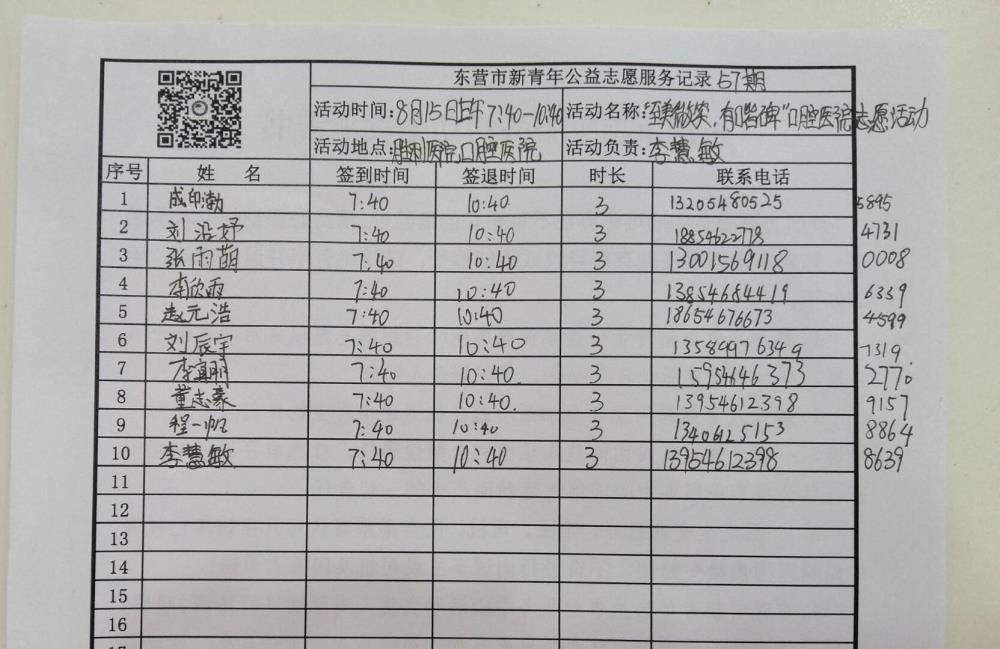 东营市新青年公益志愿服务记录 57期
活动时间: 8月15日上午 7:40-10:40 活动名称: 微笑,有口皆碑"口腔医院志愿活动
活动地点: 胜利医院口腔医院 活动负责: 李慧敏
序号 姓 名 签到时间 签退时间 时长 联系电话
1 成印勃 7:40 10:40 3 13205480525 5895
2 刘沿妤 7:40 10:40 3 18854622778 4731
3 张雨萌 7:40 10:40 3 13001569118 0008
4 李欣雨 7:40 10:40 3 13854684419 6339
5 赵元浩 7:40 10:40 3 18654676673 4599
6 刘辰宇 7:40 10:40 3 13589976349 7319
7 李 7:40 10:40 3 15954646373 2770
8 董志豪 7:40 10:40 3 13954612398 9157
9 程一 7:40 10:40 3 1340615153 8864
10 李慧敏 7:40 10:40 3 13954612398 8639
11
12
13
14
15
16